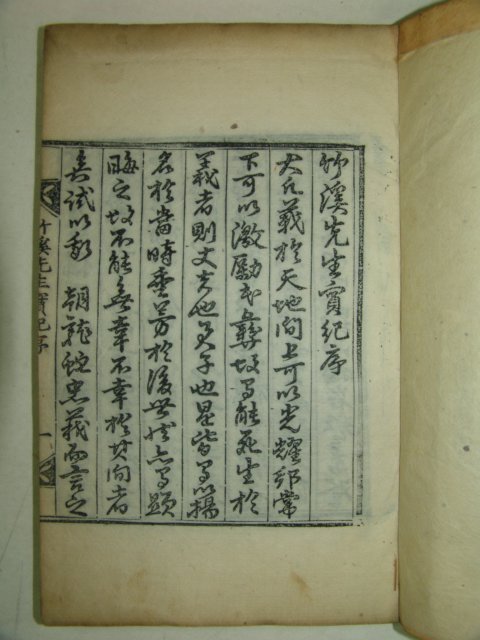 竹溪先生實紀序
大凡義於天地間上可以光耀邦常
下可以激勵民彝故有能死生於
義者則丈夫也男子也是皆有以揚
名於當時垂芳於後世然亦有顯
晦之故不能無幸不幸於其間者
矣試以我 朝龍蛇忠義而言之
竹溪先生實紀序 一